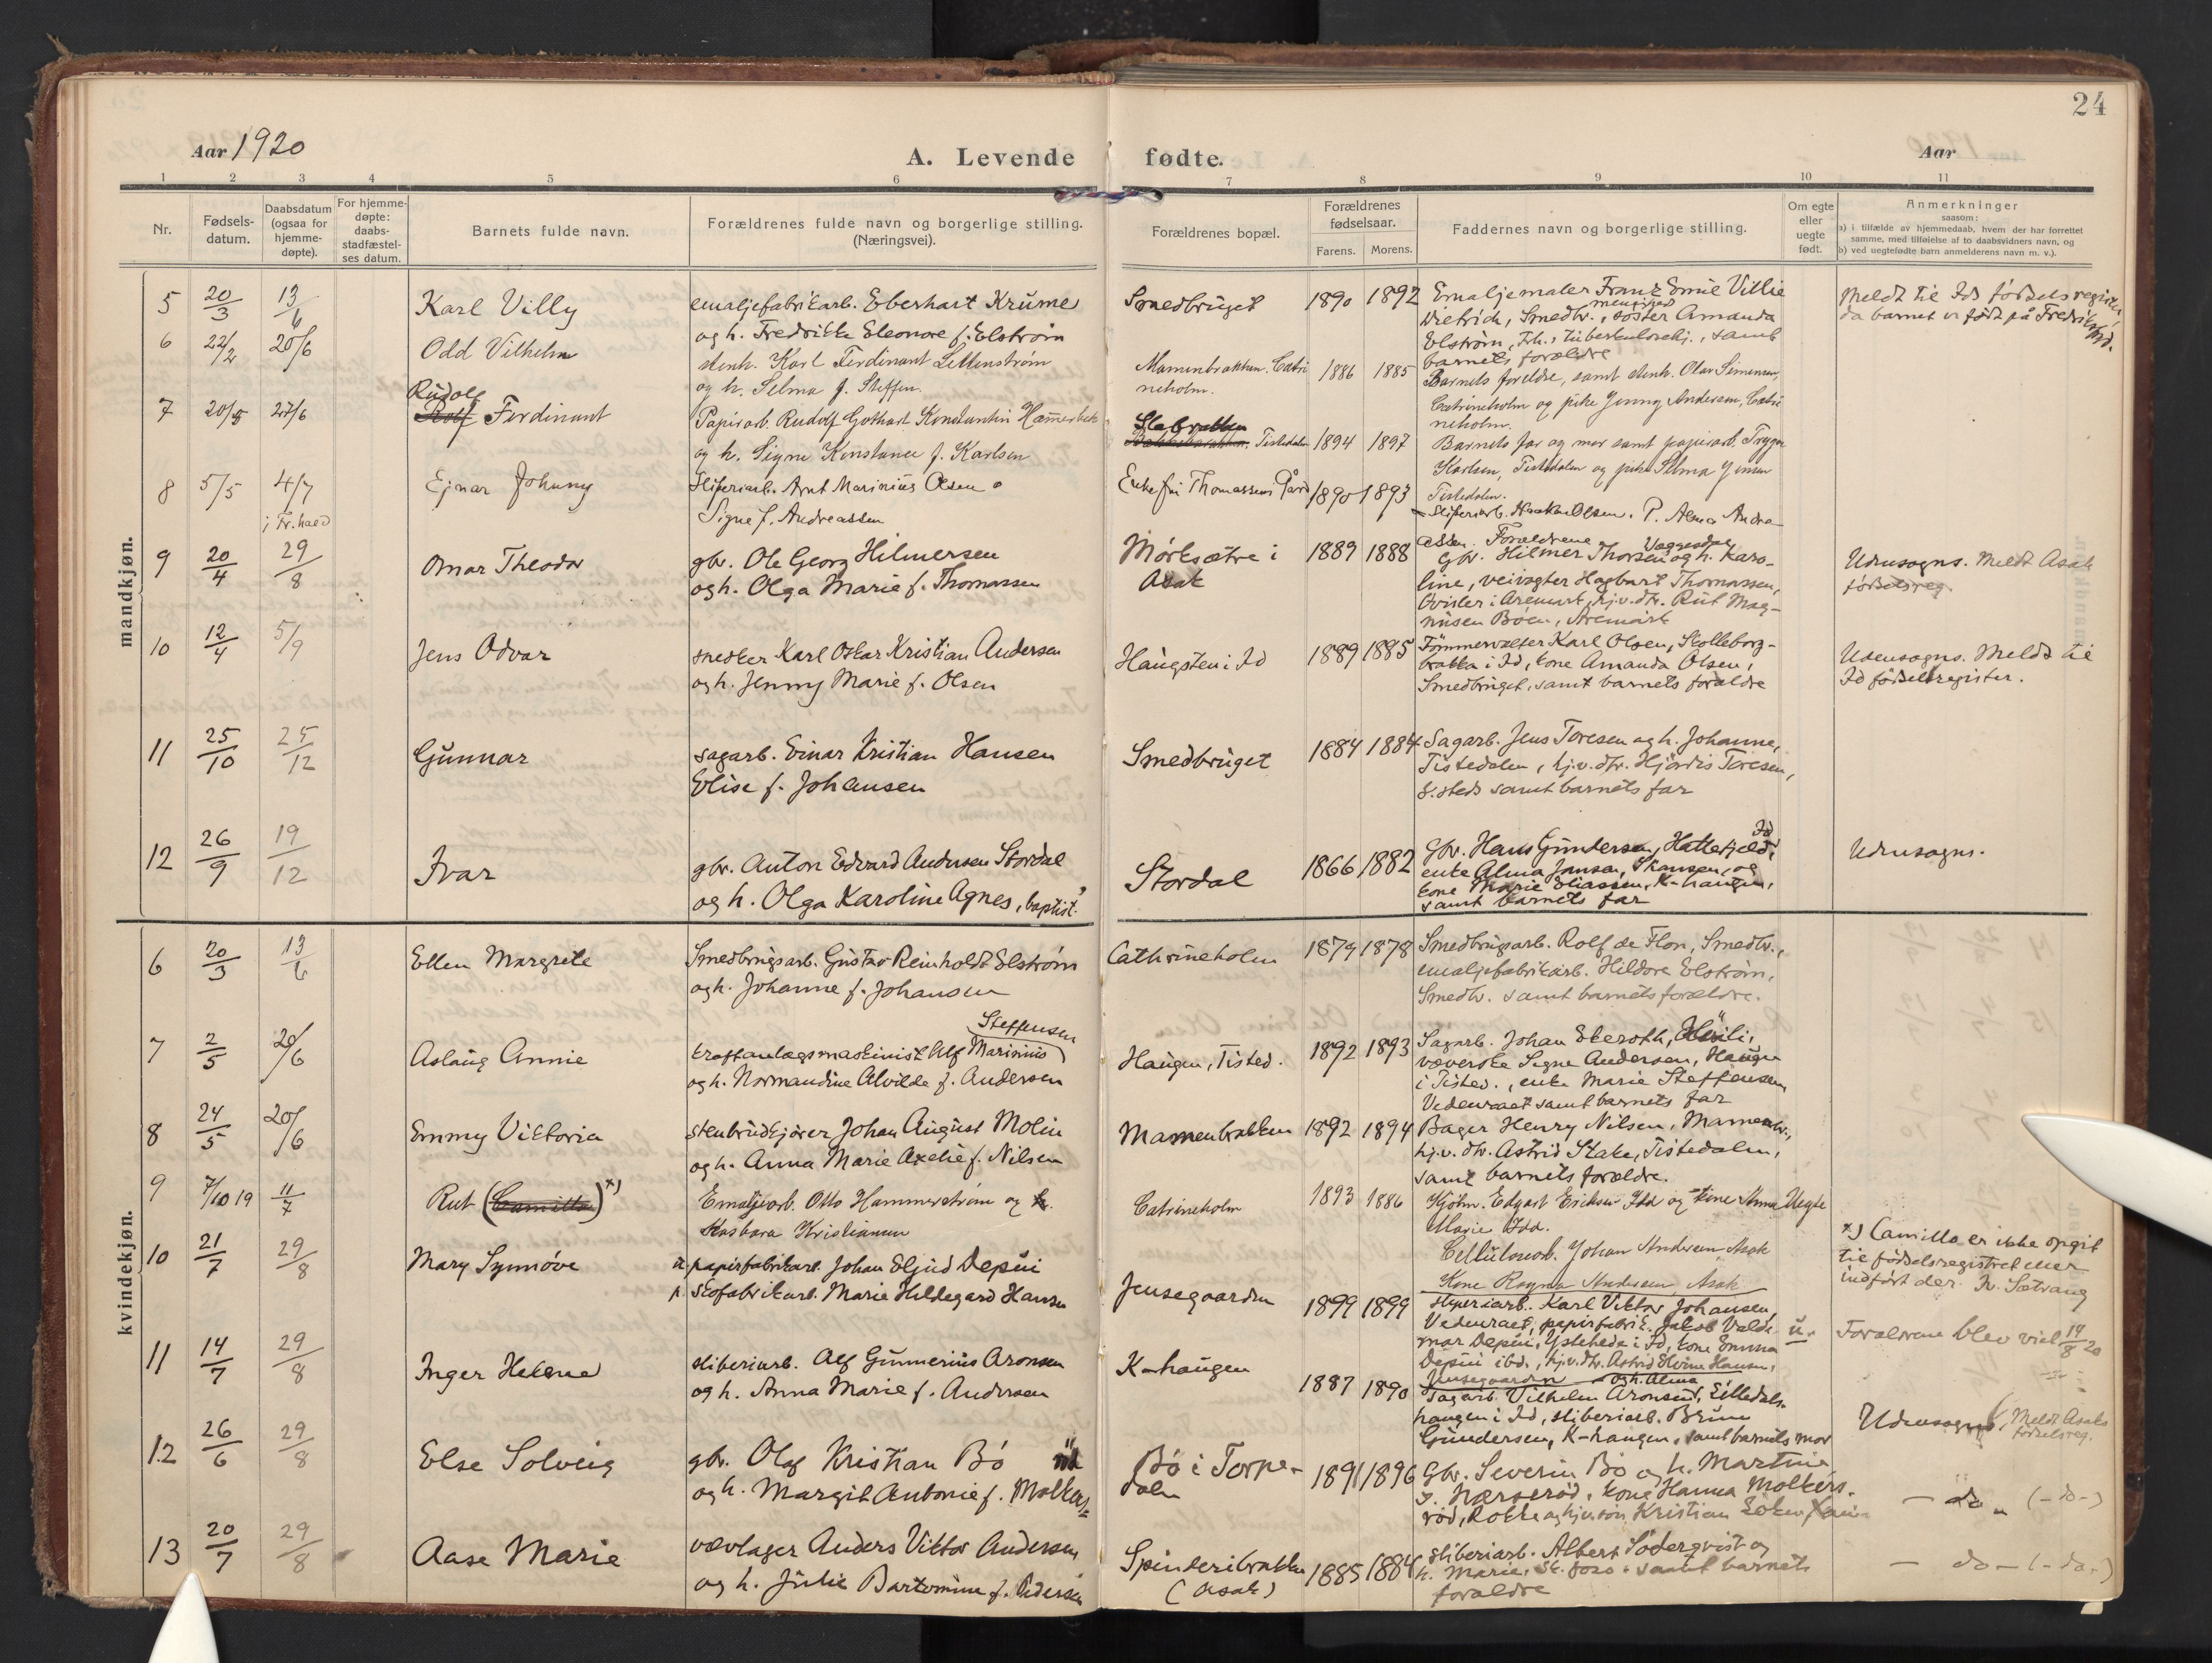 24
Aar 1920
A. Levende fødte.
Aar
1 2 3 4 5 6 7 8 9 10 11
Nr.
Fødsels-
datum.
Daabsdatum
(ogsaa for
hjemme-
døpte).
For hjemme-
døpte:
daabs-
stadfæstel-
ses datum.
Barnets fulde navn.
Forældrenes fulde navn og borgerlige stilling.
(Næringsvei).
Forældrenes bopæl.
Forældrenes
fødselsaar.
Farens. Morens.
Faddernes navn og borgerlige stilling.
Om egte
eller
uegte
født.
Anmerkninger
saasom:
a) i tilfælde av hjemmedaab, hvem der har forrettet
samme, med tilføielse af to daabsvidners navn, og
b) ved uegtefødte barn anmelderens navn m. v.).
mandkjøn.
5 20/3 13/6 Karl Villy
emaljefabrikarb. Eberhart Krume
og h. Fredrikke Eleonore f. Elstrøm
Smedbruget 1890 1892
Emaljemaler Franz Emil Villie
Dietrich, Smedbr., søster Amanda
Elstrøm, Frh., tuberkulosehj., samt
barnets forældre
Meldt til Ids fødselsregister,
da barnet er født på Fredrikshald.
6 22/2 20/6 Odd Vilhelm
stenh. Karl Ferdinant
og h. Selma f. Steffen
Mamenbrakken. Catri
neholm. 1886 1885
Barnets foreldre, samt stenh. Olav Simensen,
Catrineholm og pike Jenny Andersen, Catri
neholm.
7 20/5 27/6 Rudolf
Rolf Ferdinant
Papirarb. Rudolf Gothart Konstantin
og h. Signe Konstance f. Karlsen
Tistedalen 1894 1897
Barnets far og mor samt papirarb. Trygve
Karlsen, Tistedalen og pike Selma Jensen
Tistedalen.
8 5/5 4/7
i Fr.hald
Ejnar Johnny
Sliperiarb. Arnt Marinius Olsen o
Signe f. Andreassen
Enkefru Thomassens Gård 1890 1893
Sliperiarb. Haakon Olsen. P. Alma Andre-
assen. Forældrene
9 20/4 29/8 Omar Theodor
gbr. Ole Georg Hilmersen
og h. Olga Marie f. Thomassen
Mørksætre i
Asak 1889 1888
Gbr. Hilmer Thorsen og h. Karo-
line, veivogter Hagbart Thomassen,
i Aremark, hj.v.dtr. Rut Mag-
nusen Bøen, Aremark
Udensogns. Meldt Asak
fødselsreg.
10 12/4 5/9 Jens Odvar
snedker Karl Oskar Kristian Andersen
og h. Jenny Marie f. Olsen
Haugsten i Id 1889 1885
Tømmervalter Karl Olsen, Skolleborg-
brakka i Id, kone Amanda Olsen,
Smedbruget, samt barnets forældre
Udensogns. Meldt til
Id fødselsregister.
11 25/10 25/12 Gunnar
sagarb. Einar Kristian Hansen
Elise f. Johansen
Smedbruget 1884 1884
Sagarb. Jens Toresen og h. Johanne,
Tistedalen, hj.v.dtr. Hjørdis Toresen,
s.steds samt barnets far
12 26/9 19/12 Ivar
gbr. Anton Edvard Andersen Stordal
og h. Olga Karoline Agnes, baptist.
Stordal 1866 1882
Gbr. Hans Gundersen, Hattefjeld, Id
enke Alma Jonsen, Skansen, og
kone Marie Eliassen, K-haugen,
samt barnets far
Udensogns.
kvindekjøn.
6 20/3 13/6 Ellen Margrete
Smedbrugsarb. Gustav Reinholdt Elstrøm
og h. Johanne f. Johansen
Cathrineholm 1879 1878
Smedbrugsarb. Rolf de Flon, Smedbr.,
emaljefabrikarb. Hildora Elstrøm,
Smedbr. samt barnets forældre.
7 2/5 20/6 Aslaug Annie
Steffensen
kraftanlægsmaskinist Alf Marinius
og h. Normandine Alvilde f. Andersen
Haugen, Tisted. 1892 1893
Sagarb. Johan Ekeroth,
væverske Signe Andersen, Haugen
i Tisted., enke Marie Steffensen,
Vedenraet samt barnets far
8 24/5 20/6 Emmy Viktoria
stenbrudkjører Johan August Molin
og h. Anna Marie Axelie f. Nilsen
Mamenbrakken 1892 1894
Bager Henry Nilsen, Mamenbr.,
hj.v. dtr. Astrid Stake, Tistedalen,
samt barnets forældre.
9 7/10 19 11/7 Rut (Camilla) x)
Emaljearb. Otto Hammerstrøm og h.
Barbara Kristiansen
Catrineholm 1893 1886
Kjøbm. Edgart Eriksen Idd og kone Anna
Marie Idd.
Cellulosearb. Johan Andersen Asak
Kone Ragna Andersen, Asak
Uegte
x) Camilla er ikke opgit
til fødselsregistret eller
indført der. N. Sætrang
10 21/7 29/8 Mary Synnøve
u. papirfabrikarb. Johan Ejnid Depui
p. Skofabrikarb. Marie Hildegard Hansen
Jensegaarden 1899 1899
Sliperiarb. Karl Viktor Johansen,
Vedenraet, papirfabrik. Jakob Valde-
mar Depui, Ystehede i Id, kone Emma
Depui ibd., hj.v.dtr. Astrid Elvine Hansen,
Jensegaarden
u.
Forældrene blev viet 14/8 20
11 14/7 29/8 Inger Helene
sliberiarb. Alf Gunnerius Aronsen
og h. Anna Marie f. Andersen
K-haugen 1887 1890
og h. Alma
Sagarb. Vilhelm Aronsen,
haugen i Id, sliberiarb. Brun
Gundersen, K-haugen, samt barnets mor
12 26/6 29/8 Else Solveig
gbr. Olaf Kristian Bö
og h. Margit Antonie f.
Bö i Torpe-
dalen 1891 1896
Gbr. Severin Bö og h. Martine
kone Hanna Molkers-
rød, Rokke og hj.v.søn Kristian
Udensogns (Meldt Asaks
fødselsreg.
— do „ (-do-)
13 20/7 29/8 Aase Marie
vævlager Anders Viktor Andersen
og h. Julie Bartomine f. Pedersen
Spinderibrakken
(Asak) 1885 1884
Sliberiarb. Albert Söderqvist og
h. Marie, samt barnets
forældre
— do — (-do-)